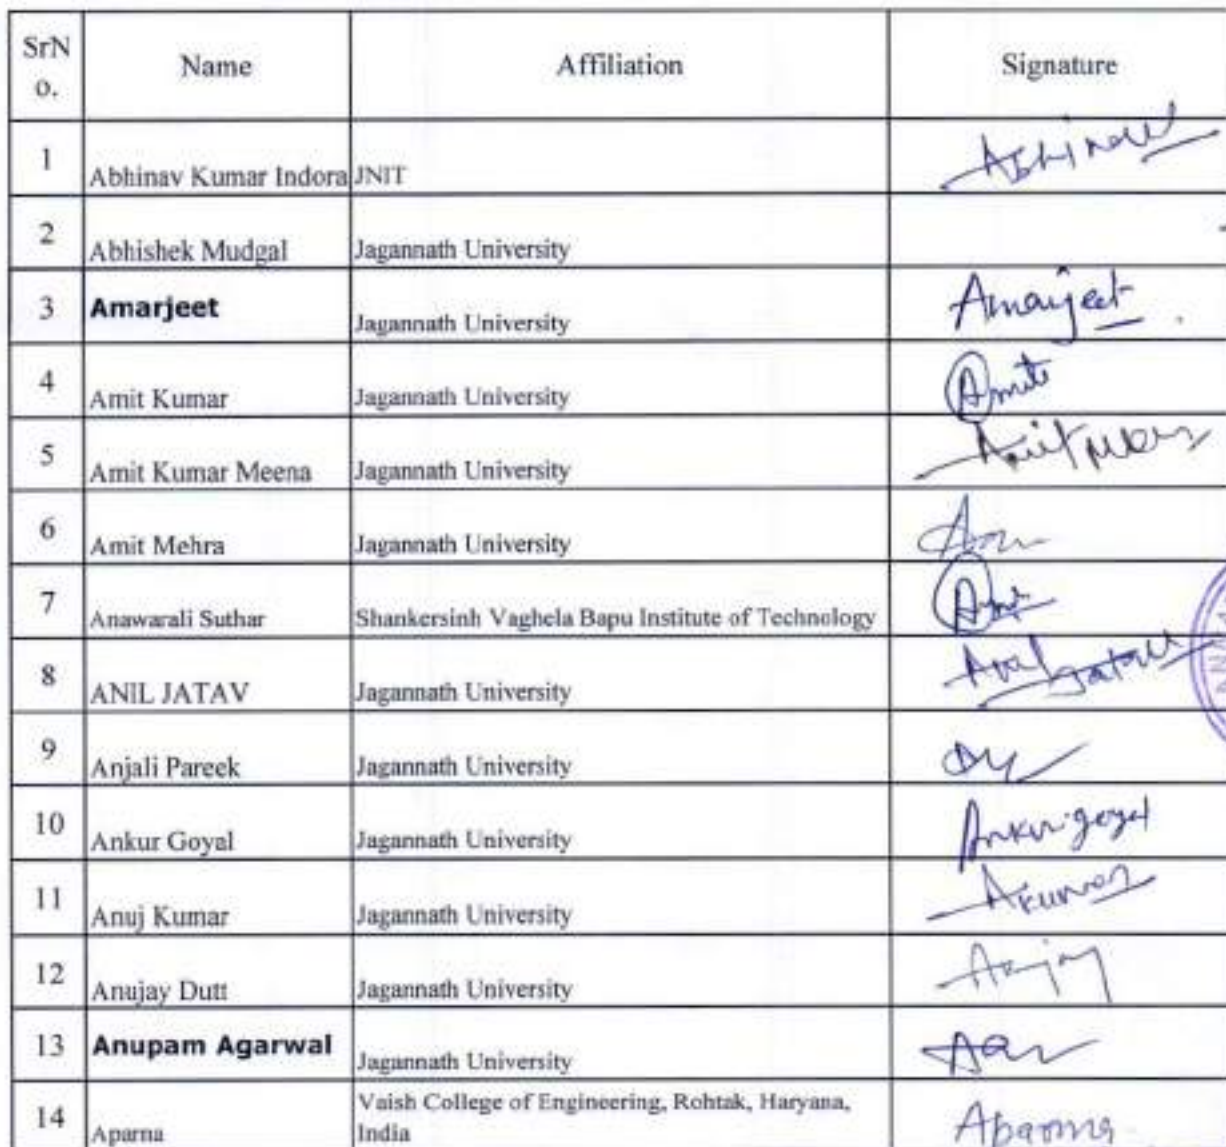 SrN
o.
Name
Affiliation
Signature
1 Abhinav Kumar Indora JNIT Abhinav
2 Abhishek Mudgal Jagannath University
3 Amarjeet Jagannath University Amarjeet
4 Amit Kumar Jagannath University
5 Amit Kumar Meena Jagannath University
6 Amit Mehra Jagannath University
7 Anawarali Suthar Shankersinh Vaghela Bapu Institute of Technology
8 ANIL JATAV Jagannath University
9 Anjali Pareek Jagannath University
10 Ankur Goyal Jagannath University Ankur goyal
11 Anuj Kumar Jagannath University
12 Anujay Dutt Jagannath University
13 Anupam Agarwal Jagannath University
14 Aparna Vaish College of Engineering, Rohtak, Haryana,
India Aparna